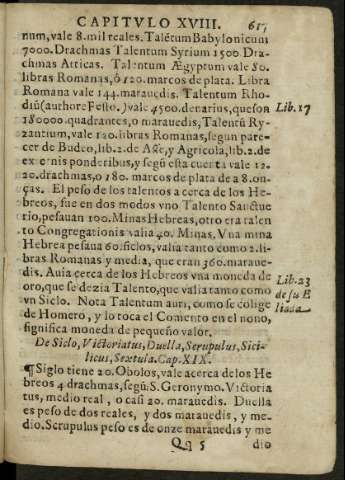 CAPITVLO XVIII. 617
num, vale 8. mil reales. Talẽtum Babylonicum
7000. Drachmas Talentum Syrium 1500 Dra-
chmas Atticas. Talentum Ægyptum vale 80.
libras Romanas, ò 120. marcos de plata. Libra
Romana vale 144. marauedis. Talentum Rho-
diũ (authore Festo.) vale 4500. denarius, que son
Lib. 17
180000. quadrantes, o marauedis, Talentũ By-
zantium, vale 120. libras Romanas, segun pare-
cer de Budeo, lib. 2. de Asse, y Agricola, lib. 2. de
externis ponderibus, y segũ esta cuenta vale 12-
20. drachmas, o 180. marcos de plata de a 8. on-
ças. El peso de los talentos a cerca de los He-
breos, fue en dos modos vno Talento Sanctue
rio, pesauan 100. Minas Hebreas, otro era talen
to Congregationis valia 40. Minas. Vna mina
Hebrea pesaua 60. siclos, valia tanto como 2. li-
bras Romanas y media, que eran 360. maraue-
dis. Auia cerca de los Hebreos vna moneda de
oro, que se dezia Talento, que valia tanto como
vn Siclo. Nota Talentum auri, como se colige
Lib. 23
de su E
liada.
de Homero, y lo toca el Comento en el nono,
significa moneda de pequeño valor.
De Siclo, Victoriatus, Duella, Scrupulus, Sici-
licus, Sextula. Cap. XIX.
¶Siglo tiene 20. Obolos, vale acerca de los He
breos 4 drachmas, segũ S. Geronymo. Victoria
tus, medio real, o casi 20. marauedis. Duella
es peso de dos reales, y dos marauedis, y me-
dio. Scrupulus peso es de onze marauedis y me
Qq 5 dio